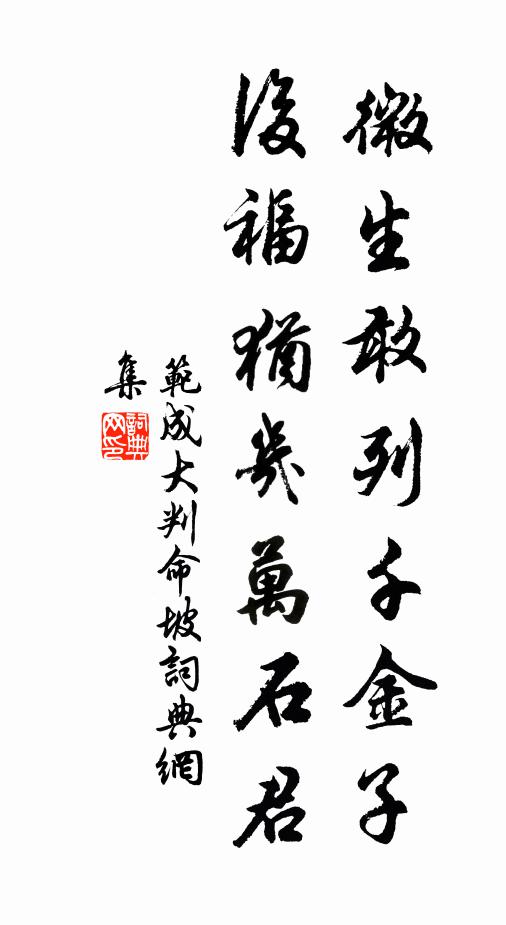 微生敢列千金子
後福猶幾萬石君
範成大判命坡詞典網
集
詞典
网印